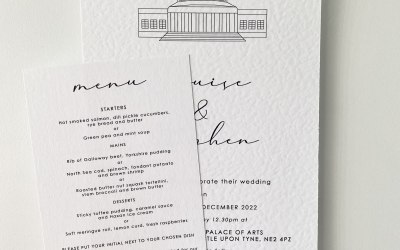 menu
STARTERS
Hot smoked salmon, dill pickle cucumbers,
rye bread and butter
or
Green pea and mint soup
MAINS
Rib of Galloway beef, Yorkshire pudding
or
North Sea cod, spinach, fondant potato
and brown shrimp
or
Roasted butter nut squash tortellini,
stem broccoli and brown butter
DESSERTS
Sticky toffee pudding, caramel sauce
and
or
Soft meringue roll, lemon curd, fresh raspberries
PLEASE PUT YOUR INITIAL NEXT TO YOUR CHOSEN DISH
uise
&
phen
orate their wedding
DECEMBER 2022
y 12.30pm at
PALACE OF ARTS
TLE UPON TYNE, NE2 6PZ